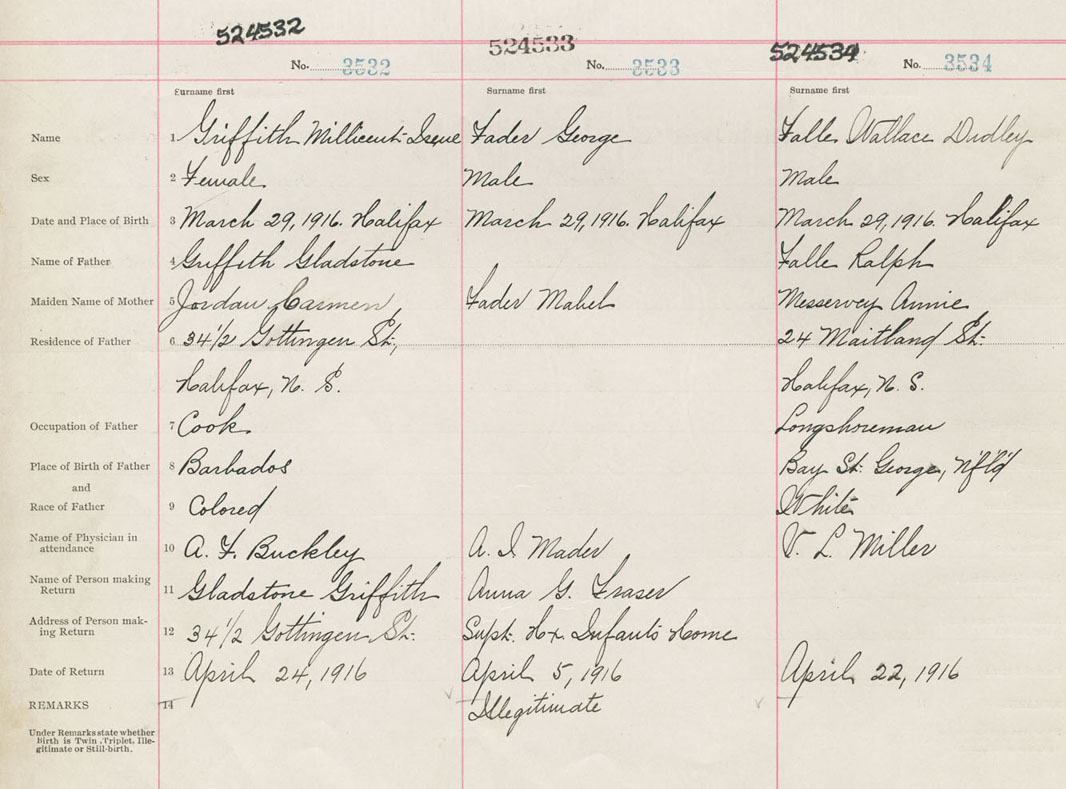 524532 524533 524534
No. 3532 No. 3533 No. 3534
Surname first Surname first Surname first
Name 1 Griffith Millicent Irene Fader George Falle Wallace Dudley
Sex 2 Female Male Male
Date and Place of Birth 3 March 29, 1916. Halifax March 29, 1916. Halifax March 29, 1916. Halifax
Name of Father 4 Griffith Gladstone Falle Ralph
Maiden Name of Mother 5 Jordan Carmen Fader Mabel Messervey Annie
Residence of Father 6 34 1/2 Gottingen St., 24 Maitland St.
Halifax, N. S. Halifax, N. S.
Occupation of Father 7 Cook Longshoreman
Place of Birth of Father 8 Barbados Bay St. George, Nf'l'd
and
Race of Father 9 Colored White
Name of Physician in
attendance 10 A. F. Buckley A. I. Mader V. L. Miller
Name of Person making
Return 11 Gladstone Griffith Anna G. Fraser
Address of Person mak-
ing Return 12 34 1/2 Gottingen St. Supt. Hx Infants Home
Date of Return 13 April 24, 1916 April 5, 1916 April 22, 1916
REMARKS 14 Illegitimate
Under Remarks state whether
Birth is Twin, Triplet, Ille-
gitimate or Still-birth.